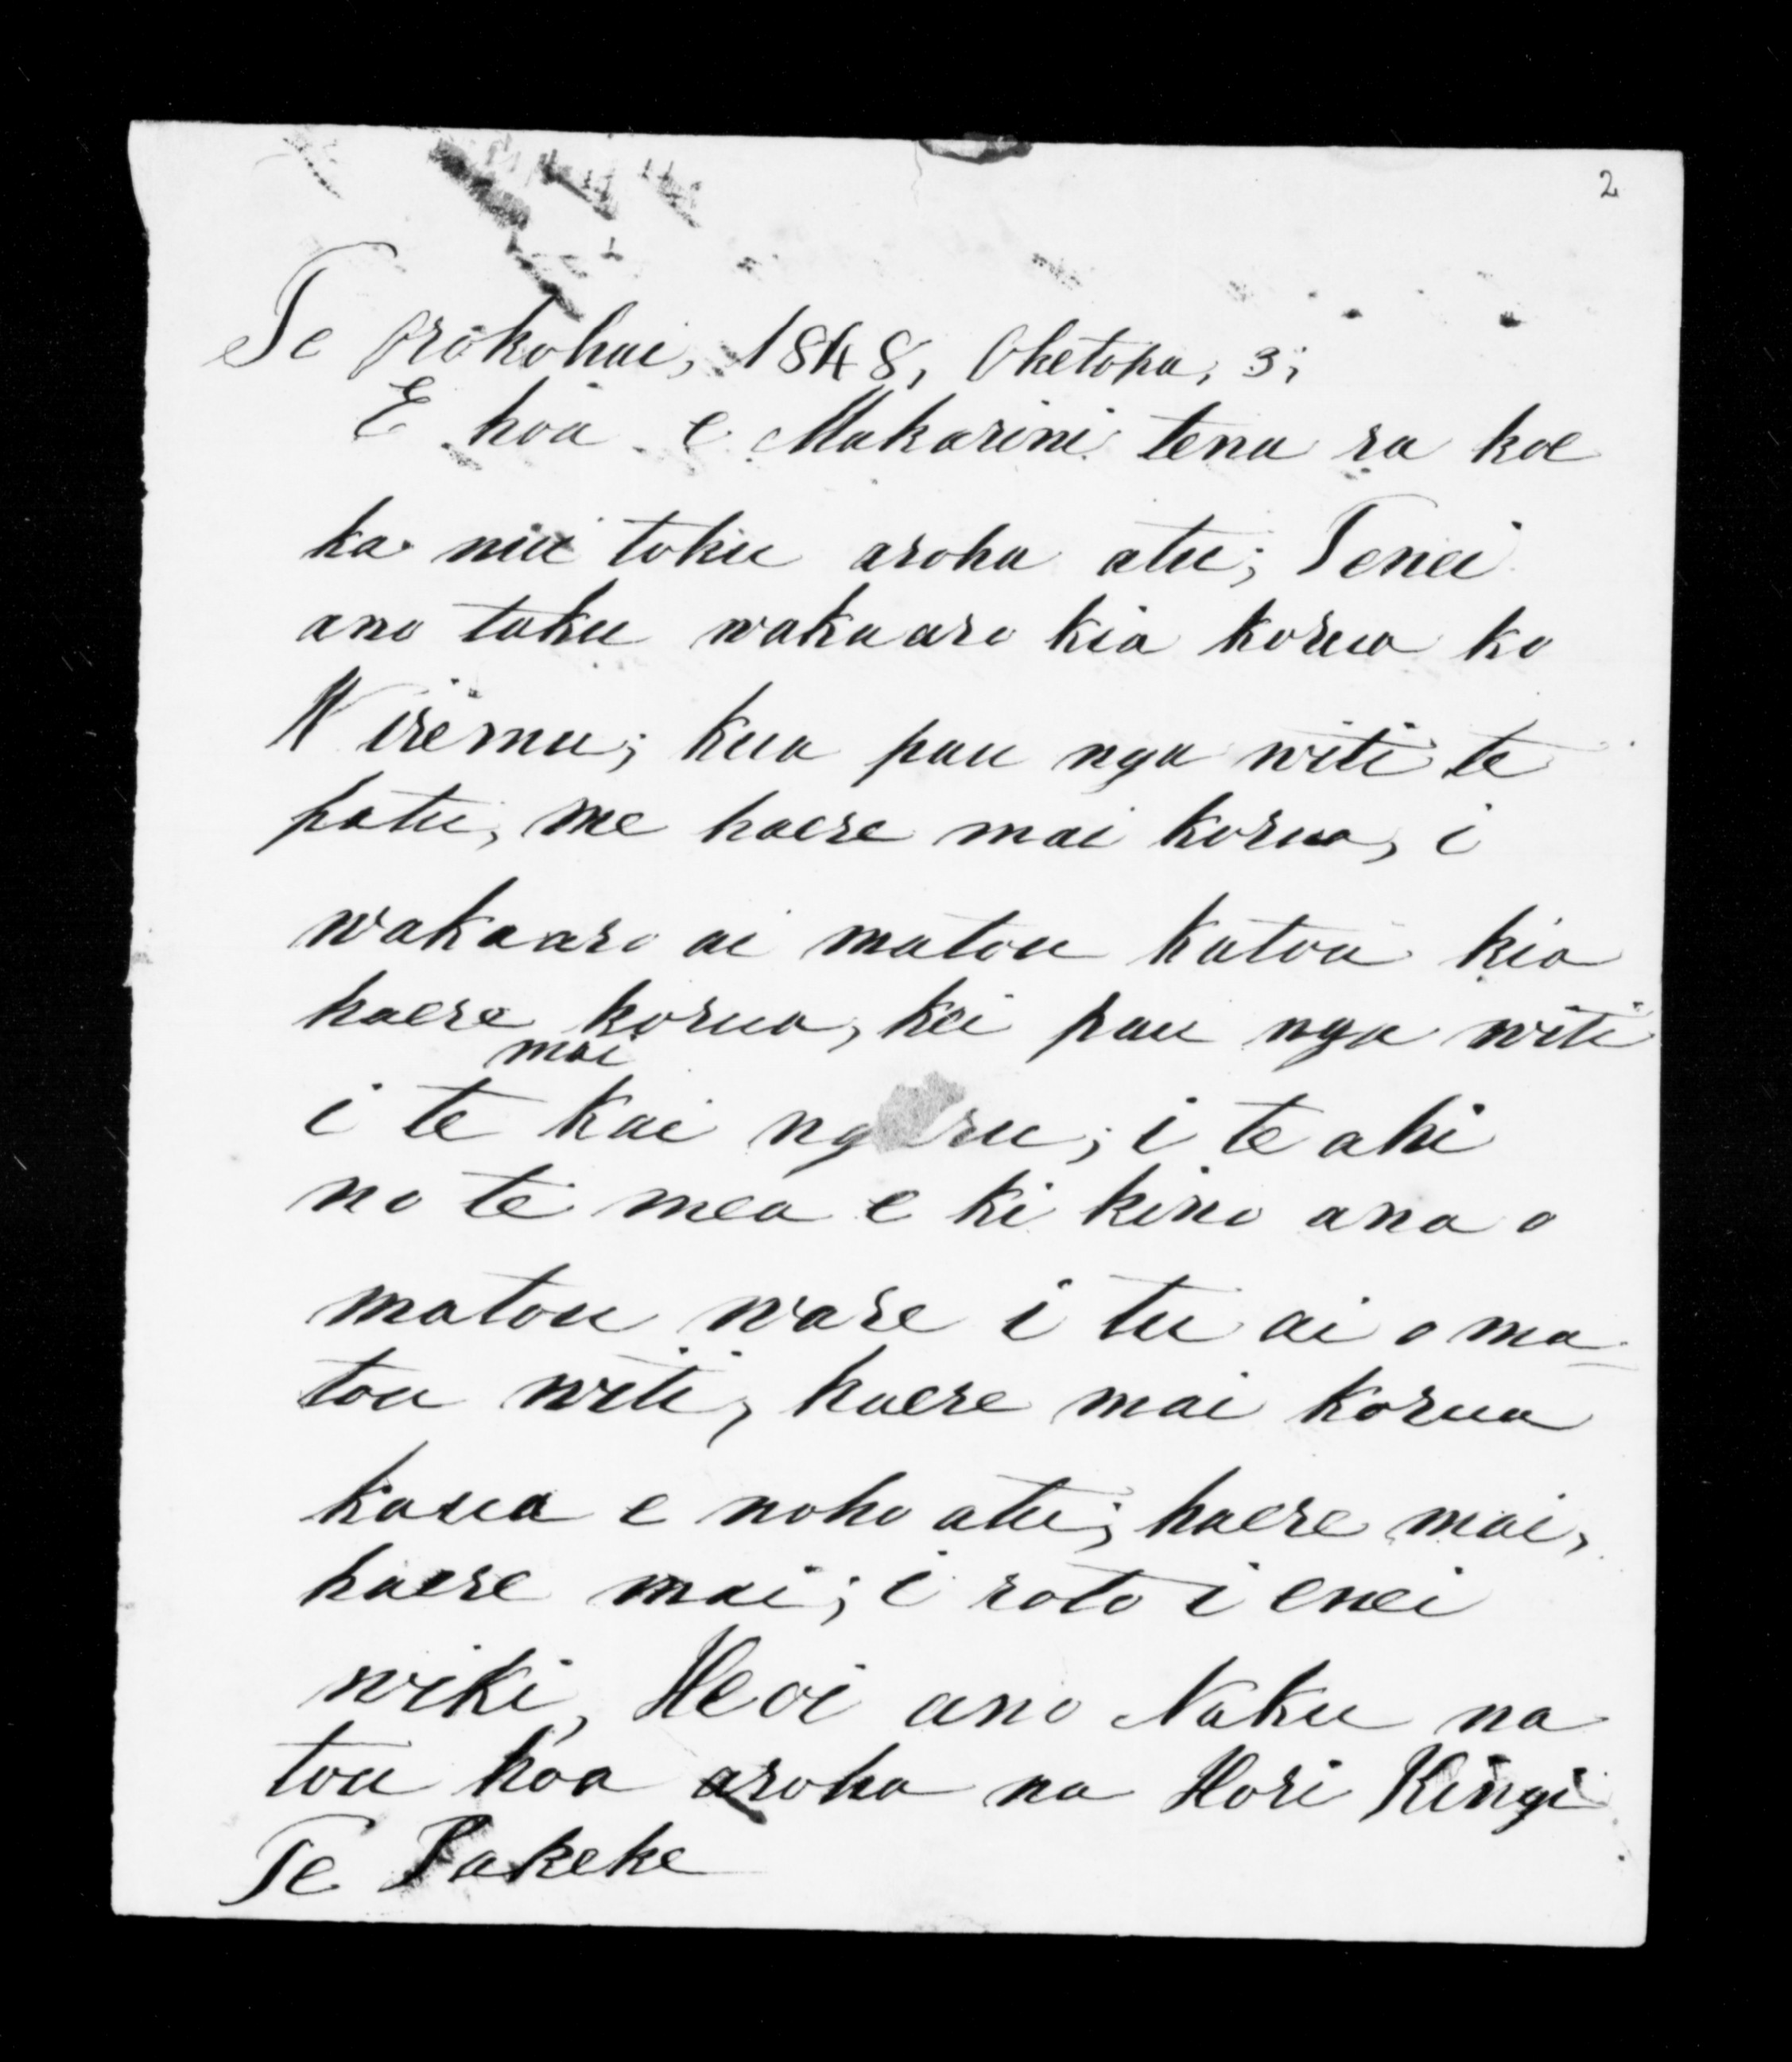 2
Te Orokohai, 1848, Oketopa, 3;
E hoa e Makarini tena ra koe
ka nui toku aroha atu; Tenei
ano taku wakaaro kia korua ko
Wiremu; kua pau nga witi te
patu, me haere mai korua, i
wakaaro ai matou katoa kia
haere korua, kei pau nga witi
mai
i te kai ngaru; i te ahi
no te mea e ki kino ana o
matou ware i tu ai o ma-
tou witi, haere mai korua
kaua e noho atu; haere mai,
haere mai; i roto i enei
wiki, Heoi ano Naku na
tou hoa aroha na Hori Kingi
Te Pakeke